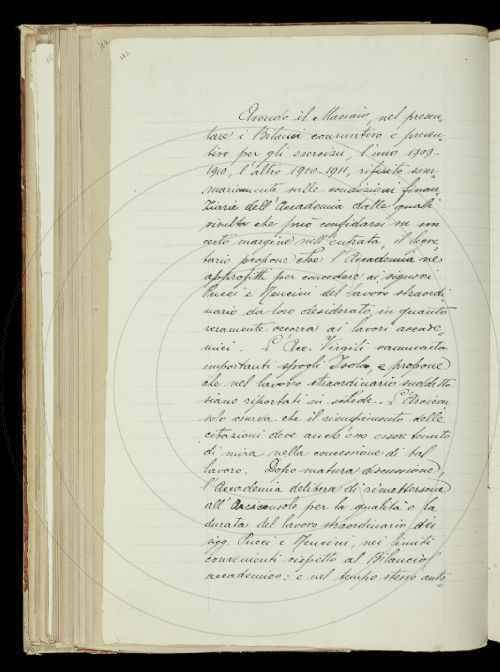 182
Avendo il Massaio, nel presen-
tare i Bilanci consuntivo e preven-
tivo per gli esercizi, l'uno 1909-
1910, l'altro 1910-1911, riferito som-
mariamente sulle condizioni finan-
ziarie dell'Accademia dalle quali
risulta che può confidarsi in un
certo margine nell'entrata, il Segre-
tario propone che l'Accademia ne
approfitti per concedere ai signori
Pucci e Nencini del lavoro straordi
nario da loro desiderato, in quanto
veramente occorra ai lavori accade-
mici. L'Acc. Virgili rammenta
importanti spogli Isola, e propone
che nel lavoro straordinario suddetto
siano riportati in schede. L'Arcicon-
solo osserva che il riempimento delle
citazioni deve anch'esso essere tenuto
di mira nella concessione di tal
lavoro. Dopo matura discussione,
l'Accademia delibera di rimettersene
all'Arciconsolo per la qualità e la
durata del lavoro straordinario dei
sigg. Pucci e Nencini, nei limiti
convenienti rispetto al Bilancio
accademico: e nel tempo stesso auto-